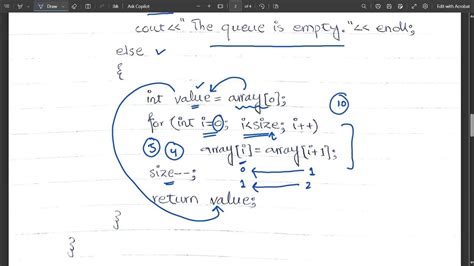 Draw
Ask Copilot
2
of 4
Edit with Acrobat
cout<<"The queue is empty."<< endl;
else
{
int value = array[0];
for (int i=0; i<size; i++)
10
5 4
array[i]=array[i+1];
size--;
0 1
1 2
return value;
}
}